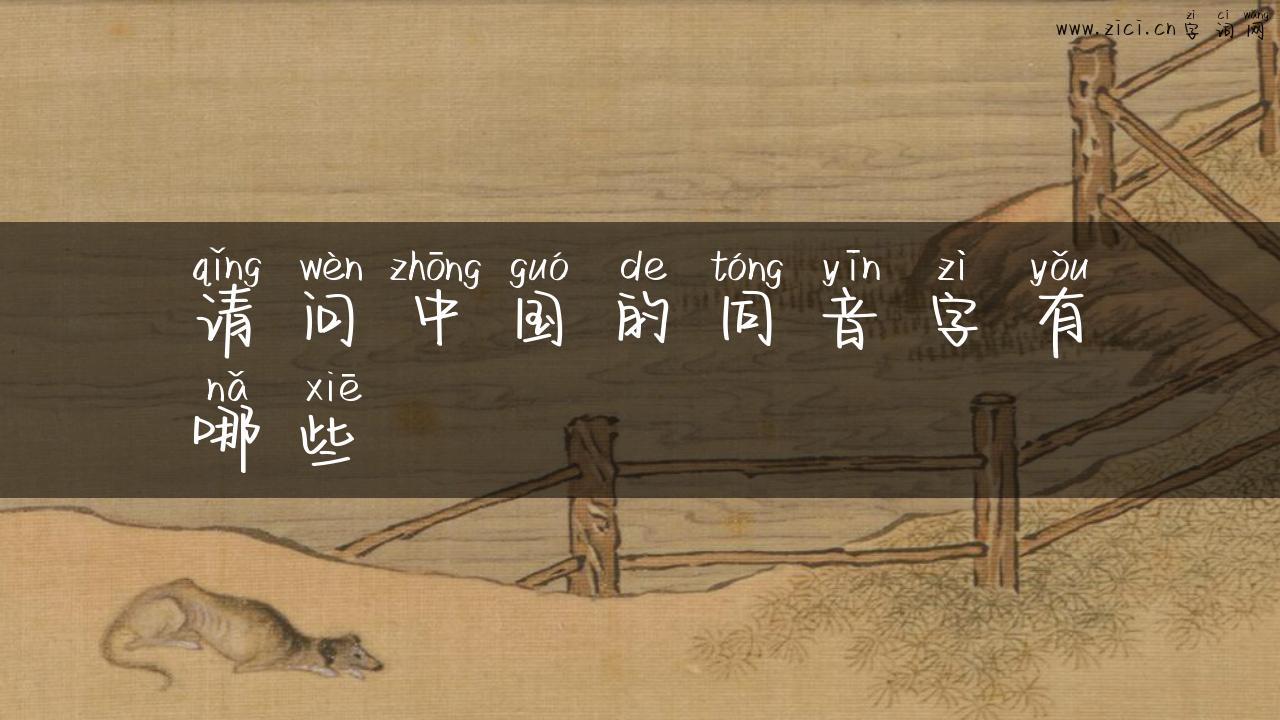 zì cí wǎng
www.zici.cn 字词网
qǐng wèn zhōng guó de tóng yīn zì yǒu
请问中国的同音字有
nǎ xiē
哪些